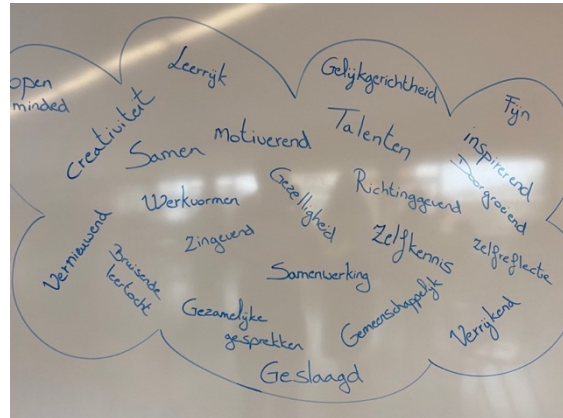 open
minded
Leerrijk
Gelijkgerichtheid
Fijn
Creativiteit
Samen
Motiverend
Talenten
inspirerend
Doorgroeiend
Werkvormen
Gezelligheid
Richtinggevend
Vernieuwend
Zingevend
Zelfkennis
Zelfreflectie
Bruisende
leertocht
Samenwerking
Gezamelijke
gesprekken
Gemeenschappelijk
Verrijkend
Geslaagd